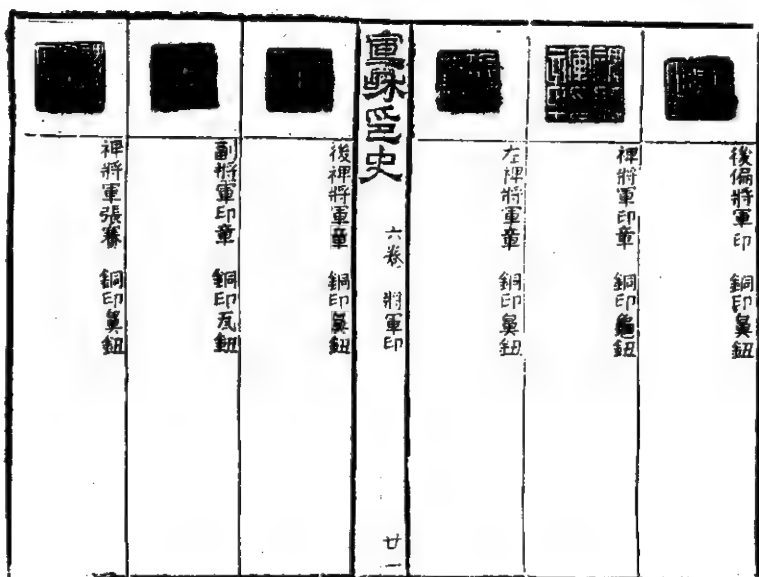 後偏將軍印 銅印鼻鈕
裨將軍印章 銅印龜鈕
左裨將軍章 銅印鼻鈕
宣龢印史 六卷 將軍印 廿一
後裨將軍章 銅印鼻鈕
副將軍印章 銅印瓦鈕
裨將軍張賽 銅印鼻鈕